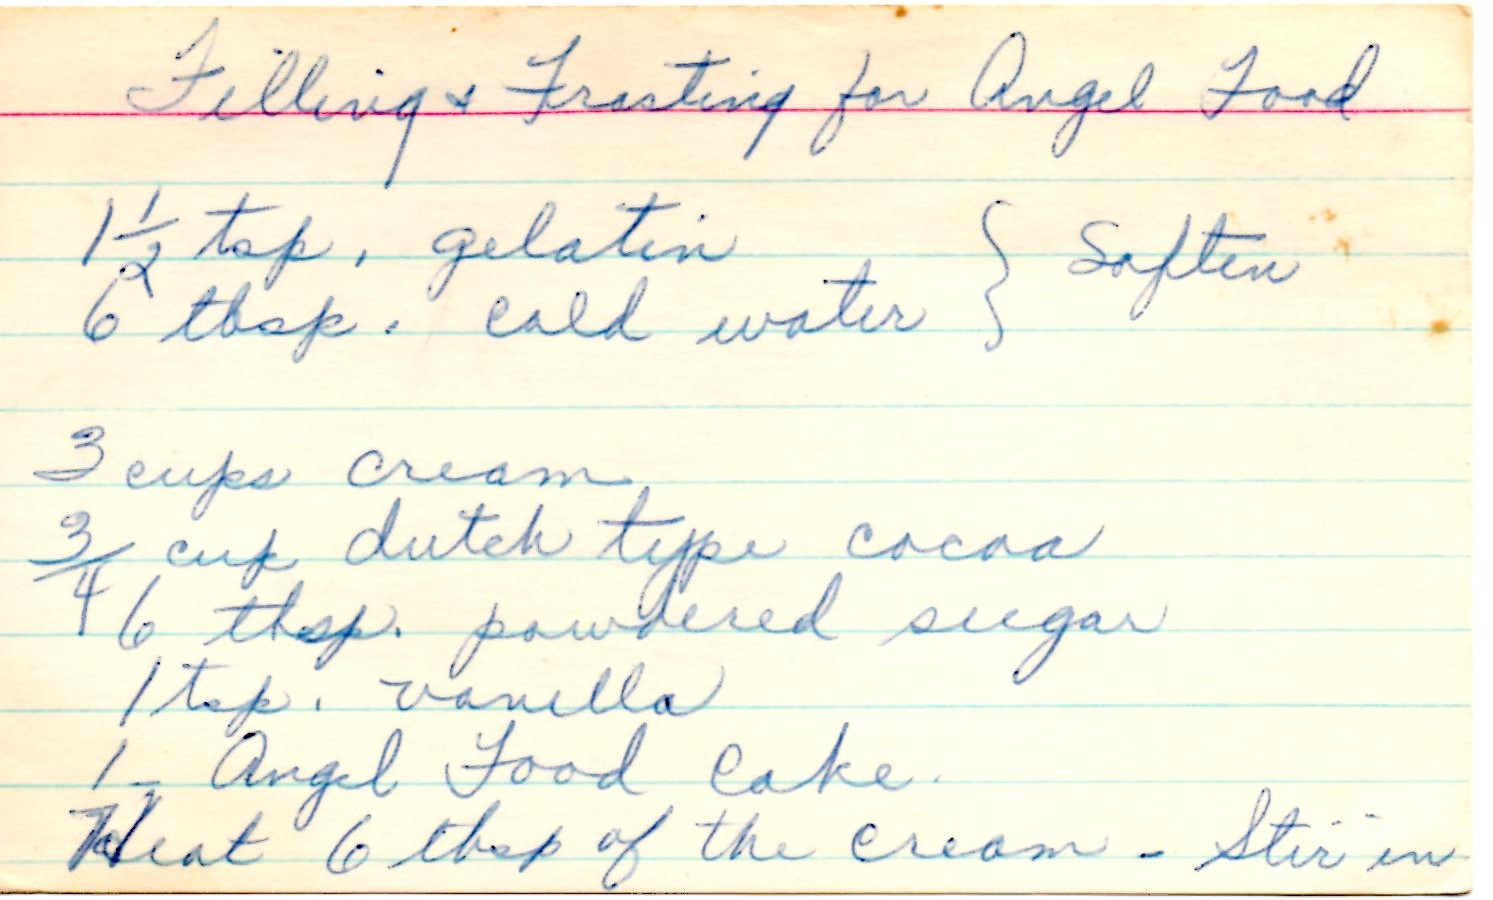 Filling & Frosting for Angel Food
1 1/2 tsp. gelatin } Soften
6 tbsp. cold water
3 cups cream
3/4 cup dutch type cocoa
6 tbsp. powdered sugar
1 tsp. vanilla
1- Angel Food Cake.
Heat 6 tbsp of the cream - Stir in